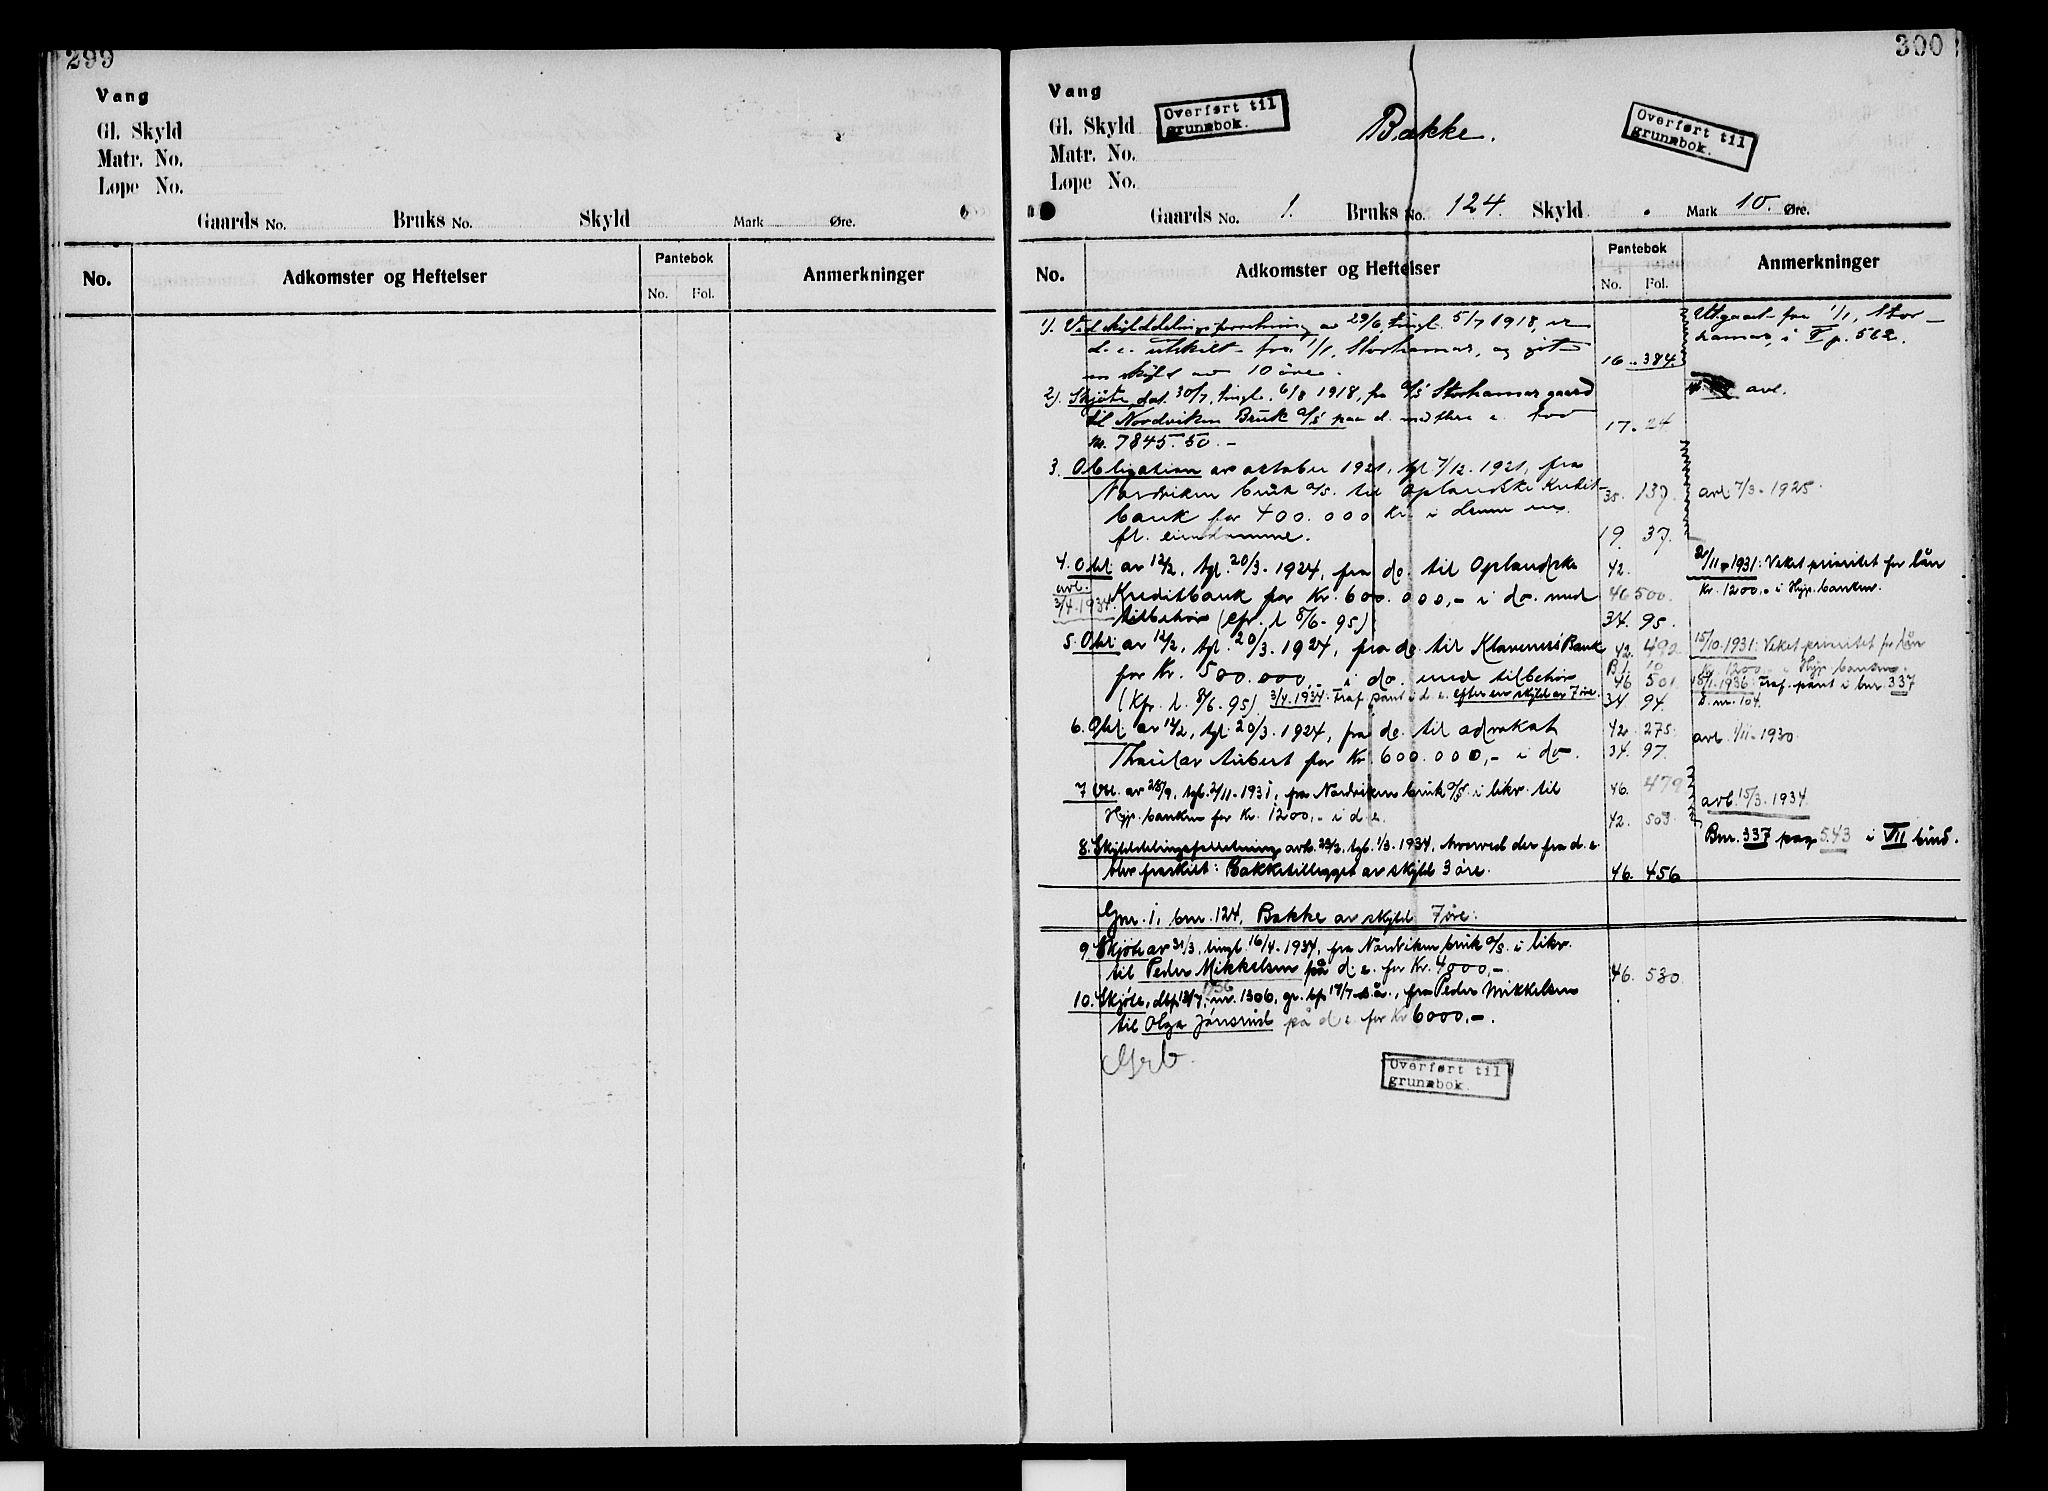 299
Vang
Gl. Skyld
Matr. No.
Løpe No.
Gaards No. Bruks No. Skyld Mark Øre.
No. Adkomster og Heftelser Pantebok Anmerkninger
No. Fol.
300
Vang
Gl. Skyld
Matr. No.
Løpe No.
Overført til
grunnbok.
Bakke.
Overført til
grunnbok.
Gaards No. 1. Bruks No. 124. Skyld Mark 10. Øre.
No. Adkomster og Heftelser Pantebok Anmerkninger
No. Fol.
1). Ved skylddelingsforretning av 29/6, tingl. 5/7 1918, er
d. e. utskilt fra 1/1, Storhamar, og git
en skyld av 10 øre. 16 - 384.
Utgaat fra 1/1, Stor-
hamar, i V p. 562.
2). Skjöte, dat. 30/7, tingl. 6/8 1918, fra A/S Storhamar gaard
til Nordviken Bruk A/S paa d. med flere e. for
kr. 7845.50.- 17. 24
avl.
3. Obligation av october 1921, tgl. 7/12. 1921, fra
Nordviken bruk A/S. til Oplandske Kredit-
bank for 400.000 kr. i denne m.
fl. eiendomme.
35. 137.
19. 37.
avl. 7/3. 1925.
4. Obl. av 12/2, tgl. 20/3. 1924, fra do. til Oplandske
avl. 3/4.1934.
Kreditbank for Kr. 600.000,- i do. med
tilbehör (cfr. l 8/6-95).
42.
46 500.
34. 95.
2/11-1931: Veket prioritet for lån
Kr. 1200,- i Hyp.banken.
5. Obl. av 12/2, tgl. 20/3. 1924, fra do. til Klaveness Bank
for Kr. 500.000,- i do. med tilbehör
(Kfr. l. 8/6-95) 3/4.1934: Fraf. pant i d. e. efter en skyld av 7 öre.
42. 492
B 1. 10
46 501
34. 94.
15/10.1931: Veket prioritet for lån
Kr. 1200,- i Hyp.banken.
18/1.1936: Fraf. pant i bnr. 337
D. nr. 104.
6. Obl. av 12/2, tgl. 20/3. 1924, fra do. til advokat
Thaulav Aubert for Kr. 600.000,- i do.
42. 275.
34. 97.
avl. 1/11-1930.
7. Obl. av 28/9, tgl. 2/11-1931, fra Nordviken bruk A/S i likv. til
Hyp.banken for Kr. 1200,- i d. e.
46. 479
42. 503.
avl. 15/3. 1934.
8. Skylddelingsforretning avh. 23/2, tgl. 1/3. 1934, hvorved der fra d. e.
blev fraskilt: Bakketillegget av skyld 3 öre. 46. 456
Bnr. 337 pag 543 i VII bind.
Gnr. 1, bnr. 124, Bakke av skyld 7 öre:
9. Skjöte av 31/3, tingl. 16/4-1934, fra Nordviken bruk A/S. i likv.
til Peder Mikkelsen på d. e. for Kr. 4000,-. 46. 530.
10. Skjöte, dbf. 13/7.1936 nr. 1306, gr. bf. 17/7 s.å., fra Peder Mikkelsen
til Olga Jönsrud på d. e. for Kr 6000.-.
Overført til
grunnbok.